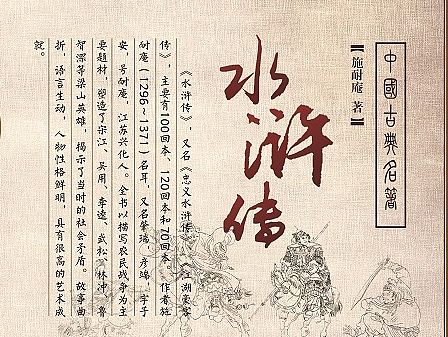 中國古典名著
【施耐庵 著】
水浒传
《水浒传》，又名《忠义水浒传》、《江湖豪客
传》，主要有100回本、120回本和70回本。作者施
耐庵（1296~1371）名耳，又名肇瑞，彦端，字子
安，号耐庵，江苏兴化人。全书以描写农民战争为主
要题材，塑造了宋江、吴用、李逵、武松、林冲、鲁
智深等梁山英雄，揭示了当时的社会矛盾。故事曲
折，语言生动，人物性格鲜明，具有很高的艺术成
就。